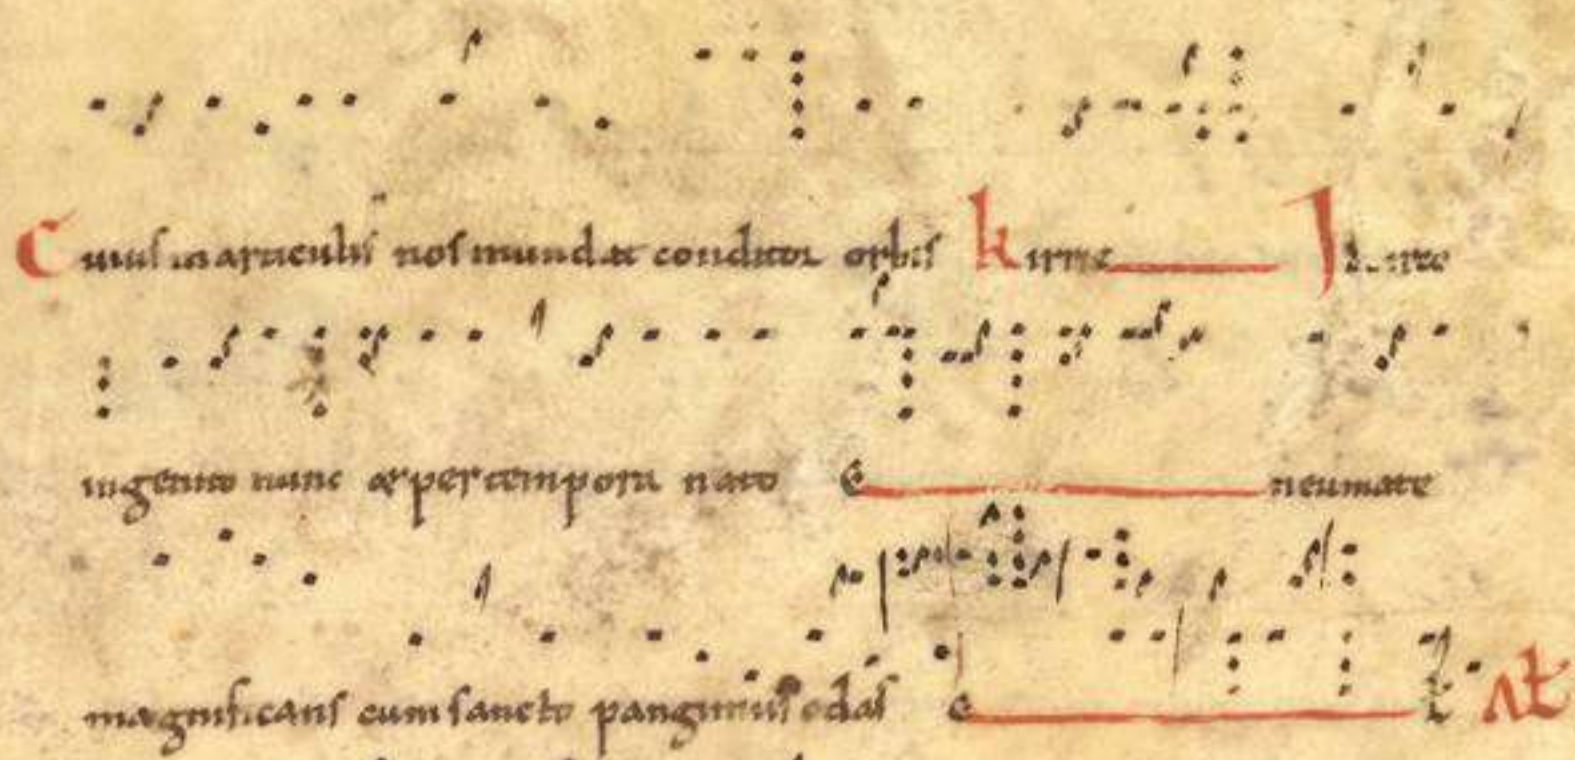 Cuius in articulis nos mundat conditor orbis Kirrie
ingenito nunc & per tempora nato e neumate
magnificans cum sancto pangimus odas e